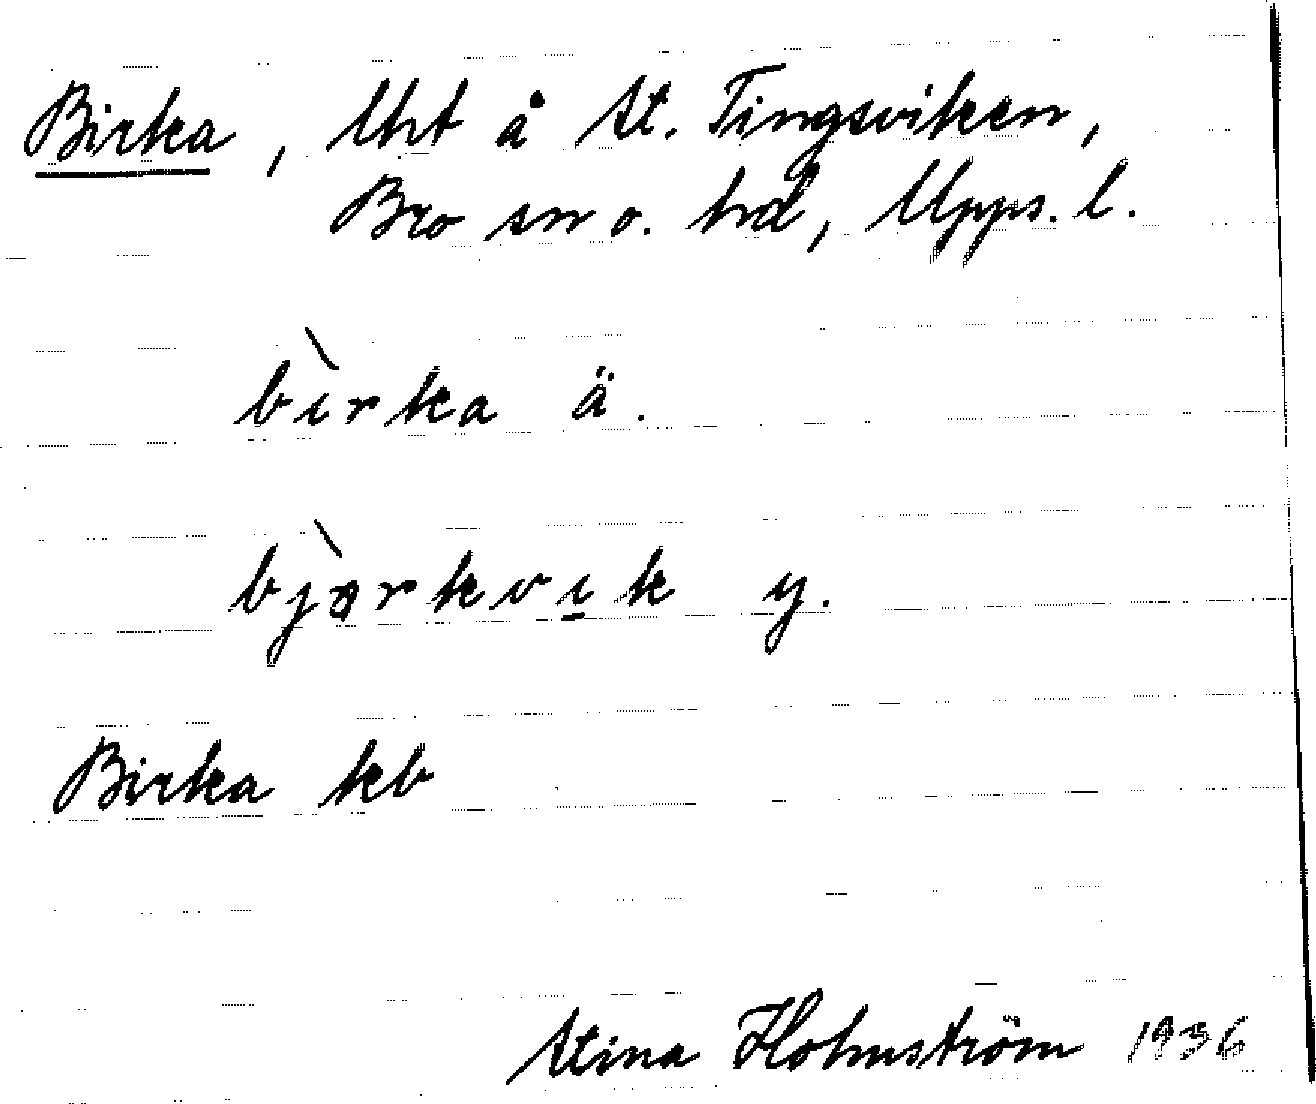 Birka, lht å St. Tingsviken,
Bro sn o. hd, Upps. l.
bìrka ä.
bjàrkvik y.
Birka kb
Stina Holmström 1936